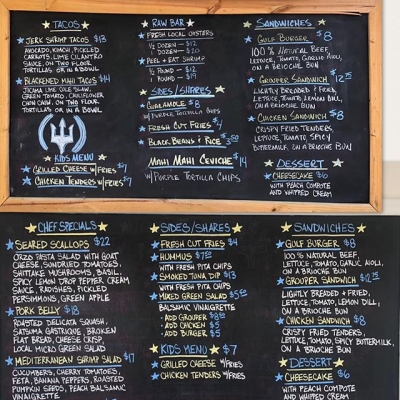 TACOS
JERK SHRIMP TACOS $13
AVOCADO, KIMCHI, PICKLED
CARROTS, LIME CILANTRO
SAUCE, ON TWO FLOUR
TORTILLAS OR IN A BOWL
BLACKENED MAHI TACOS $14
JICAMA LIME COLE SLAW,
GREEN TOMATO, CAULIFLOWER
CHOW CHOW, ON TWO FLOUR
TORTILLAS OR IN A BOWL
KIDS MENU
GRILLED CHEESE W/FRIES $7
CHICKEN TENDERS W/FRIES $7
RAW BAR
FRESH LOCAL OYSTERS
1/2 DOZEN - $12
1 DOZEN - $20
PEEL + EAT SHRIMP
1/2 POUND - $12
1 POUND - $19
SIDES/SHARES
GUACAMOLE $8
W/ PURPLE TORTILLA CHIPS
FRESH CUT FRIES $4
BLACK BEANS & RICE $3.50
MAHI MAHI CEVICHE $14
W/ PURPLE TORTILLA CHIPS
SANDWICHES
GULF BURGER $8
100% NATURAL BEEF,
LETTUCE, TOMATO, GARLIC AIOLI,
ON A BRIOCHE BUN
GROUPER SANDWICH $12.75
LIGHTLY BREADED & FRIED,
LETTUCE, TOMATO, LEMON DILL,
ON A BRIOCHE BUN
CHICKEN SANDWICH $8
CRISPY FRIED TENDERS,
LETTUCE, TOMATO, SPICY
BUTTERMILK, ON A BRIOCHE BUN
DESSERT
CHEESECAKE $6
WITH PEACH COMPOTE
AND WHIPPED CREAM
CHEF SPECIALS
SEARED SCALLOPS $22
ORZO PASTA SALAD WITH GOAT
CHEESE, SUNDRIED TOMATOES,
SHIITAKE MUSHROOMS, BASIL,
SPICY LEMON DROP PEPPER CREAM
SAUCE, RADISHES, PICKLED
PERSIMMONS, GREEN APPLE
PORK BELLY $18
ROASTED DELICATA SQUASH,
SATSUMA GASTRIQUE, BROKEN
FLAT BREAD, CHEESE CRISP,
LOCAL MICRO GREEN SALAD
MEDITERRANEAN SHRIMP SALAD $17
CUCUMBERS, CHERRY TOMATOES,
FETA, BANANA PEPPERS, ROASTED
PUMPKIN SEEDS, PEACH BALSAMIC
VINAIGRETTE
SIDES/SHARES
FRESH CUT FRIES $4
HUMMUS $7
WITH FRESH PITA CHIPS
SMOKED TUNA DIP $13
WITH FRESH PITA CHIPS
MIXED GREEN SALAD $5
BALSAMIC VINAIGRETTE
- ADD GROUPER $8
- ADD CHICKEN $5
- ADD BURGER $5
KIDS MENU $7
GRILLED CHEESE W/FRIES
CHICKEN TENDERS W/FRIES
SANDWICHES
GULF BURGER $8
100% NATURAL BEEF,
LETTUCE, TOMATO, GARLIC AIOLI,
ON A BRIOCHE BUN
GROUPER SANDWICH $12.75
LIGHTLY BREADED & FRIED,
LETTUCE, TOMATO, LEMON DILL,
ON A BRIOCHE BUN
CHICKEN SANDWICH $8
CRISPY FRIED TENDERS,
LETTUCE, TOMATO, SPICY BUTTERMILK,
ON A BRIOCHE BUN
DESSERT
CHEESECAKE $6
WITH PEACH COMPOTE
AND WHIPPED CREAM